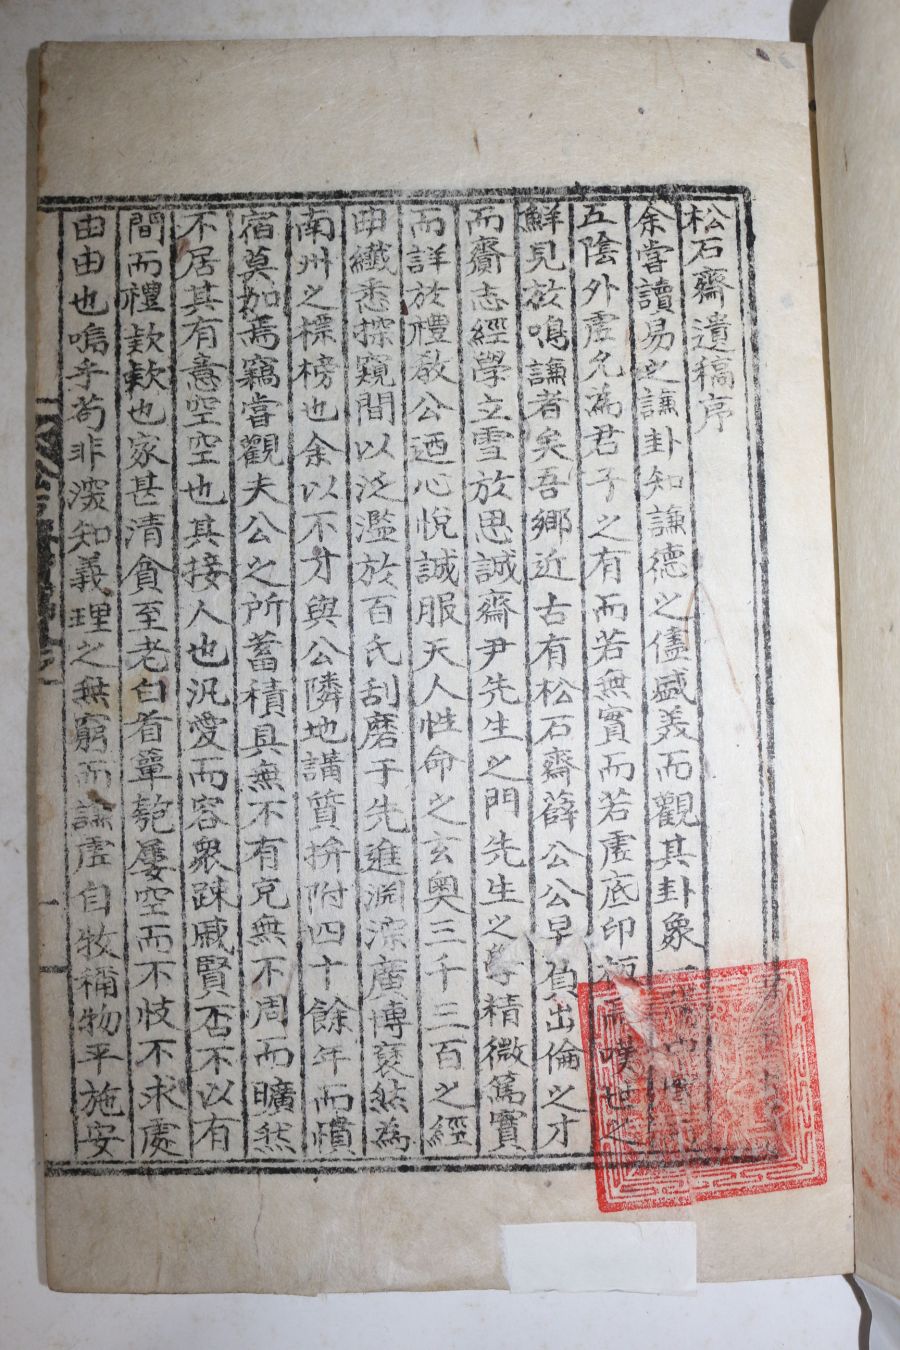 松石齋遺稿序
余嘗讀易之謙卦知謙德之儘盛美而觀其卦象
五陰外虛允爲君子之有而若無實而若虛底印 噗世之
鮮見於鳴謙者矣吾鄉近古有松石齋薛公公早負出倫之才
而齎志經學立雪於思誠齋尹先生之門先生之學精微篤實
而詳於禮敎公迺心悅誠服天人性命之玄奧三千三百之經
曲纖悉探窺間以泛濫於百氏刮磨于先進淵深廣博褎然爲
南州之標榜也余以不才與公隣地講質拚附四十餘年而慣
宿莫如焉竊嘗觀夫公之所蓄積具無不有克無不周而曠然
不居其有意空空也其接人也汎愛而容衆踈戚賢否不以有
間而禮欵欵也家甚清貧至老白首簞匏屢空而不忮不求處
由由也嗚乎苟非深知義理之無窮而謙虛自牧稱物平施安